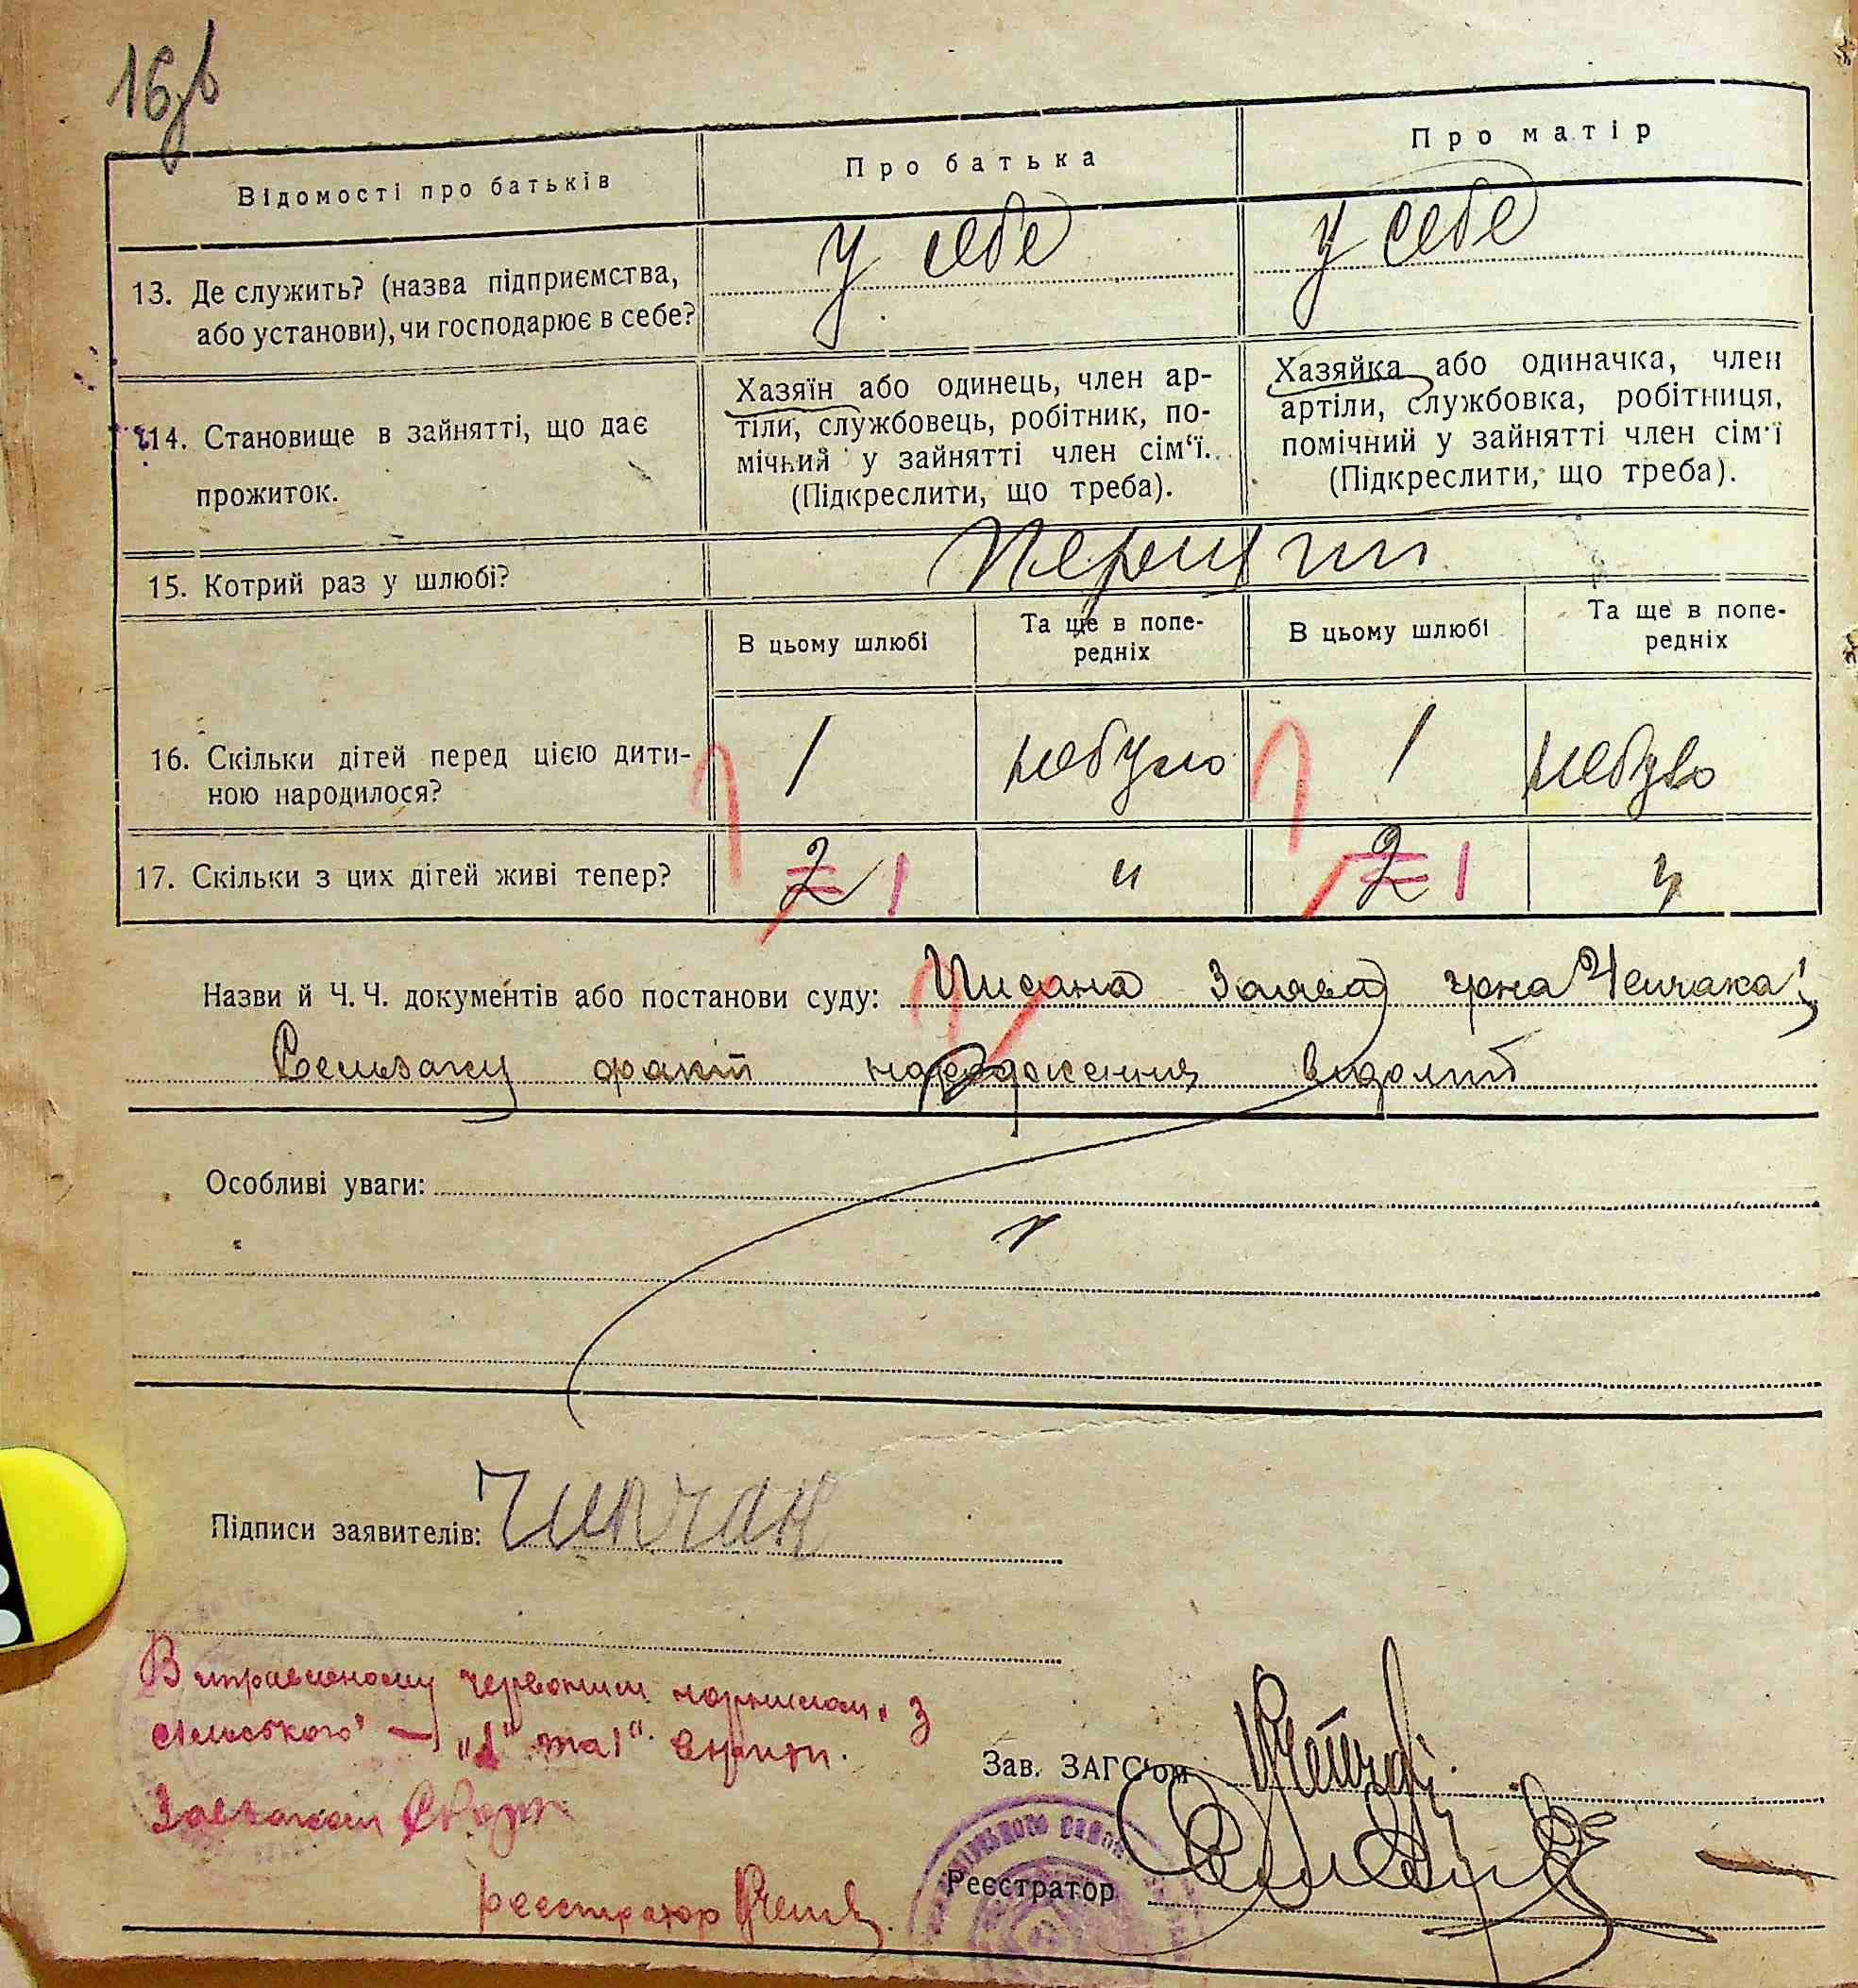 16
Відомості про батьків
Про батька
Про матір
13. Де служить? (назва підприємства,
або установи), чи господарює в себе?
у себе
у себе
14. Становище в зайнятті, що дає
прожиток.
Хазяїн або одинець, член ар-
тіли, службовець, робітник, по-
мічний у зайнятті член сім'ї.
(Підкреслити, що треба).
Хазяйка або одиначка, член
артіли, службовка, робітниця,
помічний у зайнятті член сім'ї
(Підкреслити, що треба).
15. Котрий раз у шлюбі?
Перший
В цьому шлюбі
Та ще в попе-
редніх
В цьому шлюбі
Та ще в попе-
редніх
16. Скільки дітей перед цією дити-
ною народилося?
1
небуло
1
небуло
17. Скільки з цих дітей живі тепер?
2 1
"
2 1
"
Назви й Ч. Ч. документів або постанови суду: Писана Заява гр-на
факт народження відомий
Особливі уваги:
Підписи заявителів: Чипчак
червоним чорнилом з
"1" вірити.
Зав. ЗАГС'ом
Реєстратор
реєстратор